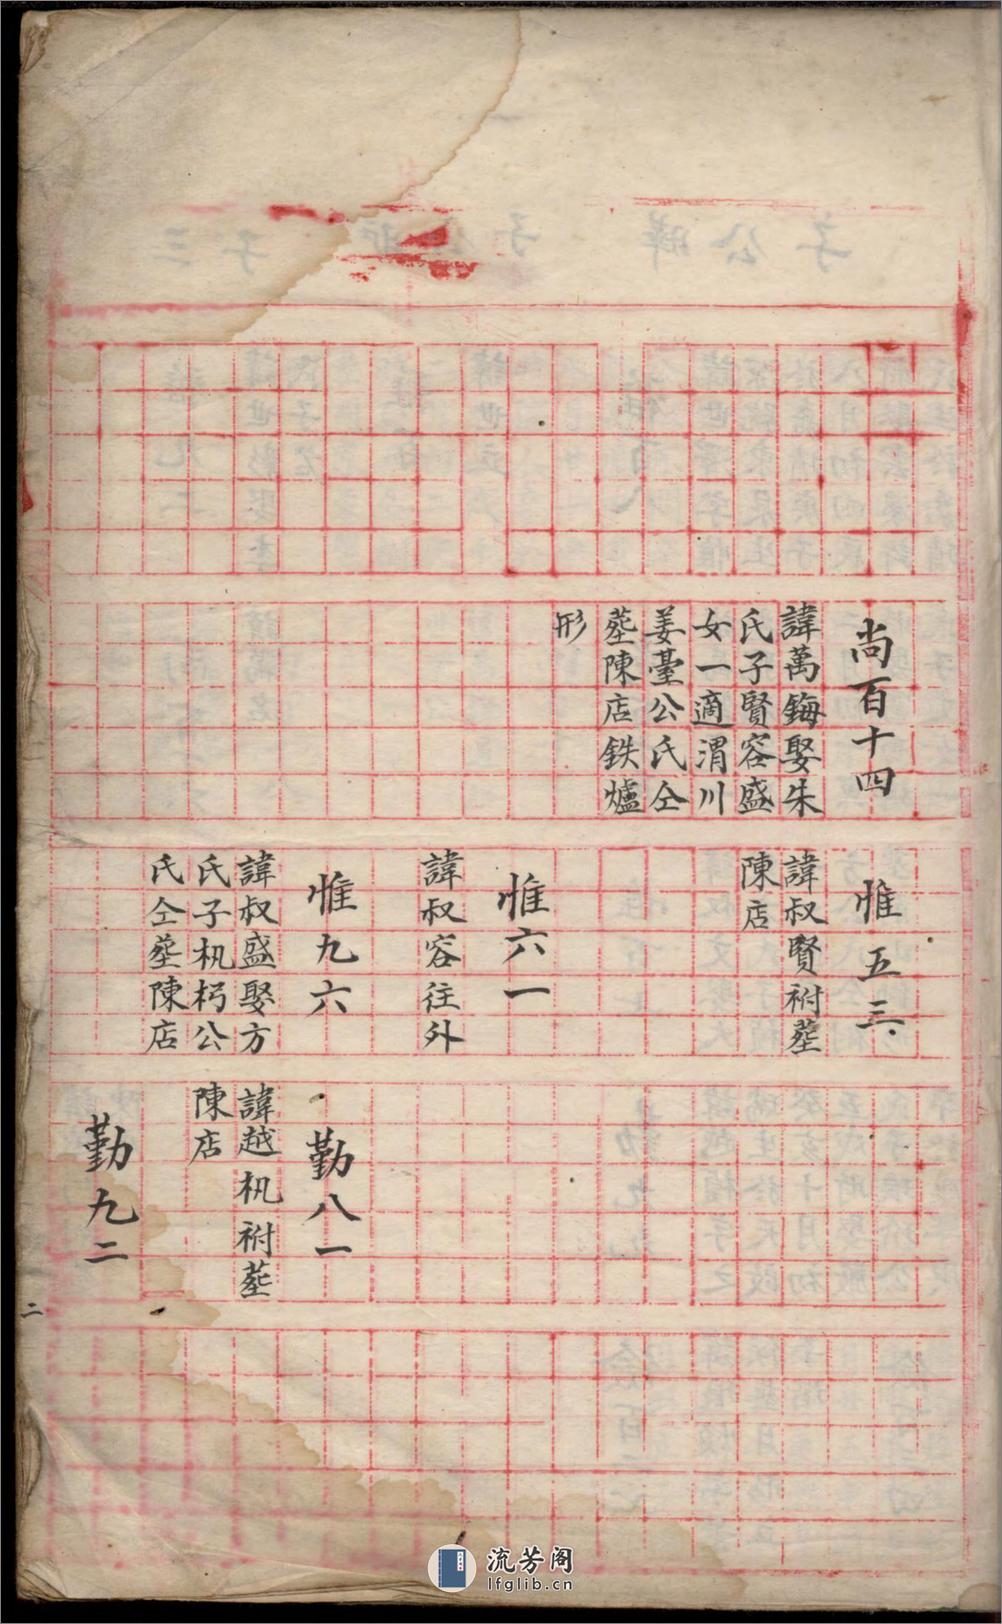 尚百十四
諱萬鋂娶朱
氏子賢容盛
女一適渭川
姜臺公氏仝
塟陳店鉄爐
形
惟五三
諱叔賢祔塟
陳店
惟六一
諱叔容往外
惟九六
諱叔盛娶方
氏子杋杇公
氏仝塟陳店
勤八一
諱越杋祔塟
陳店
勤九二
二
流芳阁
lfglib.cn